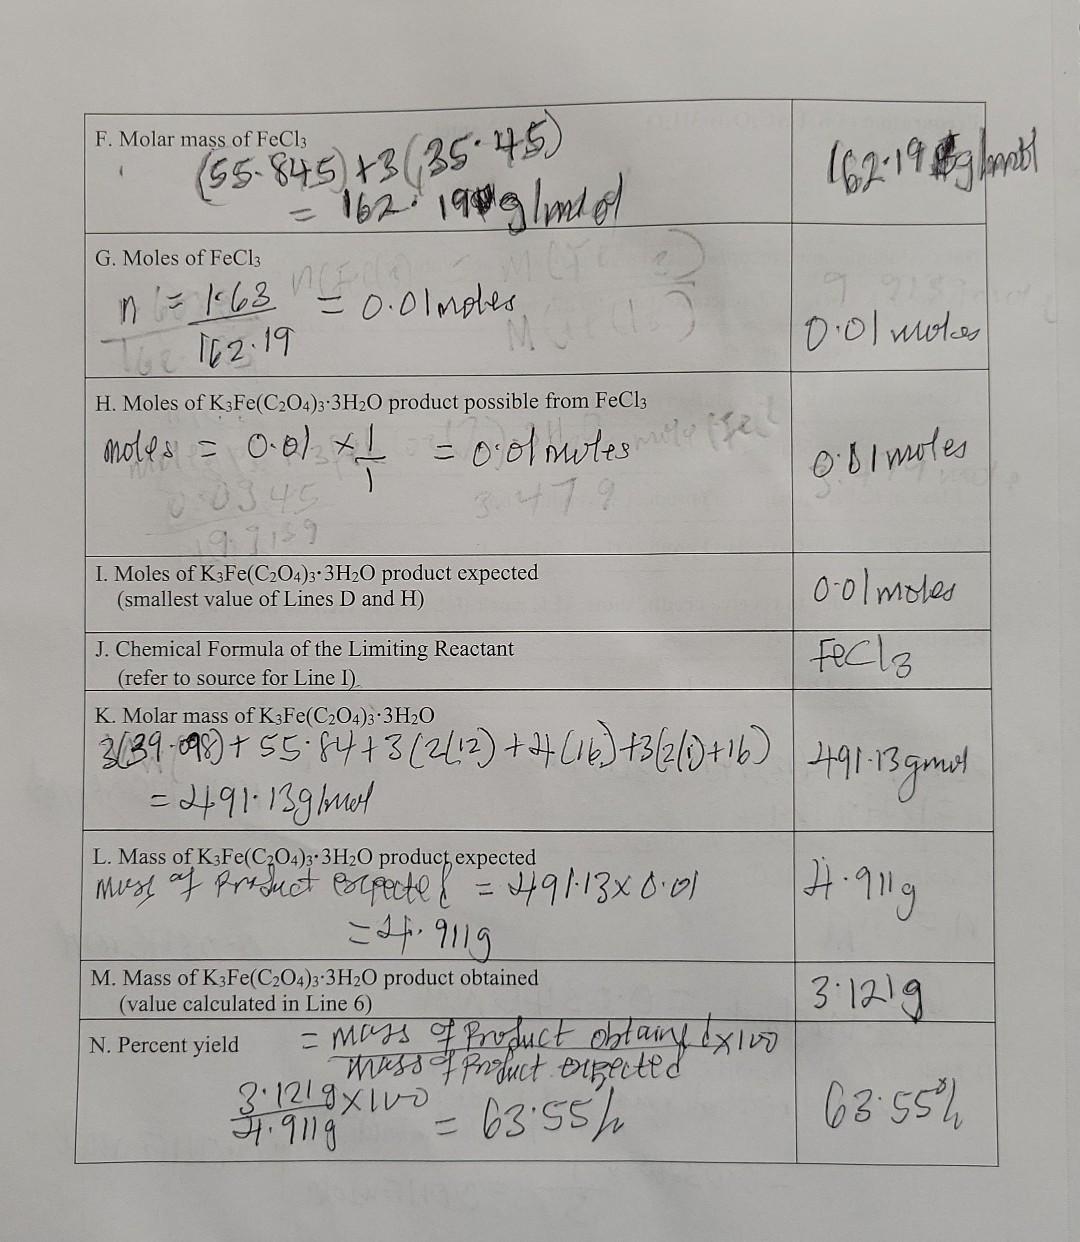 F. Molar mass of FeCl3
(55.845)+3(35.45)
= 162.19 g/mol
162.19 g/mol
G. Moles of FeCl3
n = 1.63 / 162.19 = 0.01 moles
0.01 moles
H. Moles of K3Fe(C2O4)3·3H2O product possible from FeCl3
moles = 0.01 × 1/1 = 0.01 moles
0.01 moles
0.0345
3.479
I. Moles of K3Fe(C2O4)3·3H2O product expected
(smallest value of Lines D and H)
0.01 moles
J. Chemical Formula of the Limiting Reactant
(refer to source for Line I)
FeCl3
K. Molar mass of K3Fe(C2O4)3·3H2O
3(39.098)+55.84+3(2(12)+4(16)+3(2(1)+16)
= 491.13g/mol
491.13gmol
L. Mass of K3Fe(C2O4)3·3H2O product expected
Mass of Product expected = 491.13×0.01
= 4.911g
4.911g
M. Mass of K3Fe(C2O4)3·3H2O product obtained
(value calculated in Line 6)
3.121g
N. Percent yield
= mass of Product obtained ×100
mass of Product expected
3.121g×100 / 4.911g = 63.55%
63.55%